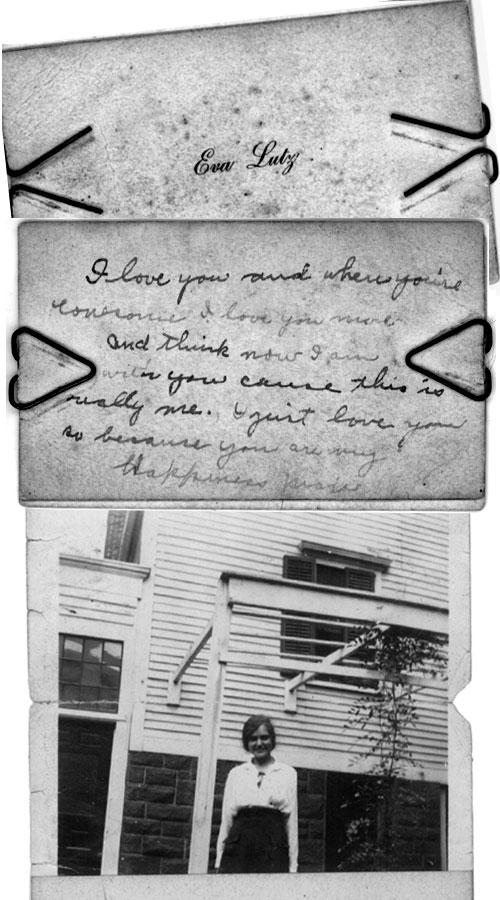 Eva Lutz
I love you and when you're
lonesome I love you more
and think now I am
with you cause this is
really me. I just love you
so because you are my
Happiness